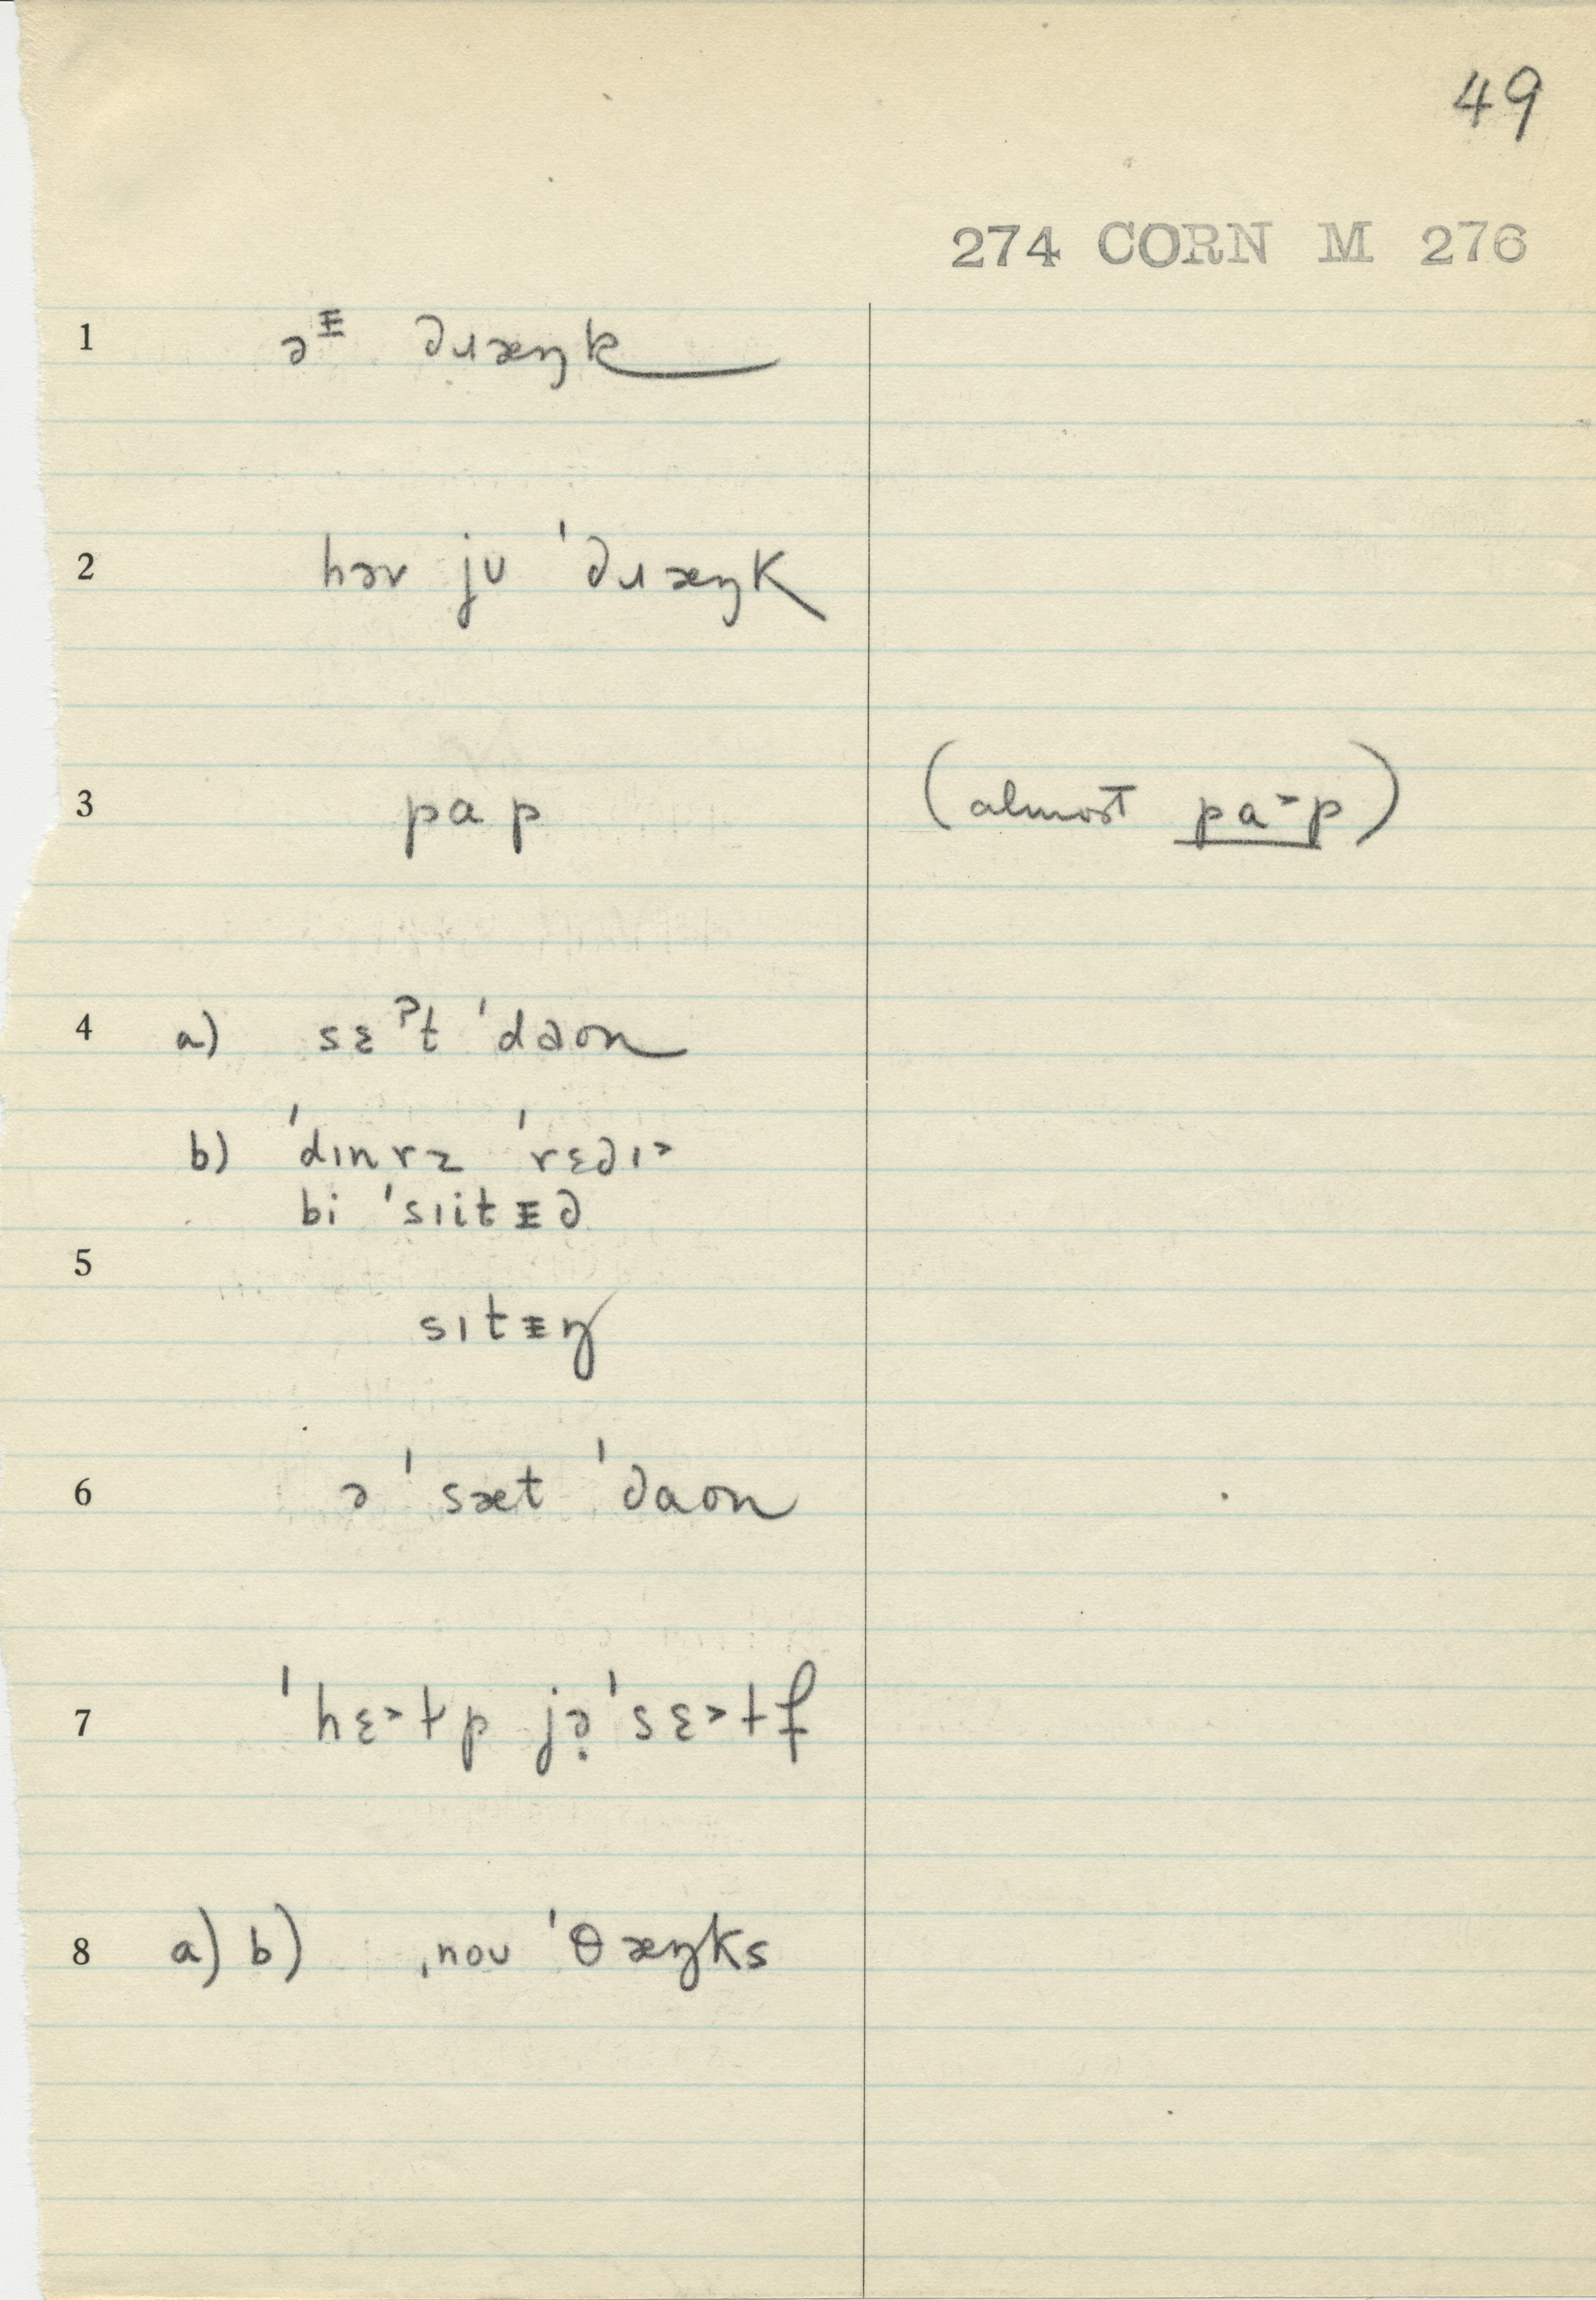 49
274 CORN M 276
1 əᵻ ∂ɹæŋk
2 həv jʊ ˈ∂ɹæŋk
3 pap (almost pa˃p)
4 a) sɛˀt ˈdaʊn
b) ˈdɪnɚz ˈrɛ∂ɪ˃
bi ˈsɪitᵻ∂
5
sɪtᵻŋ
6 ə ˈsæt ˈ∂aʊn
7 ˈhɛ˃ɫp jə̣ ˈsɛ˃ɫf
8 a) b) ˌnoʊ ˈθæŋks